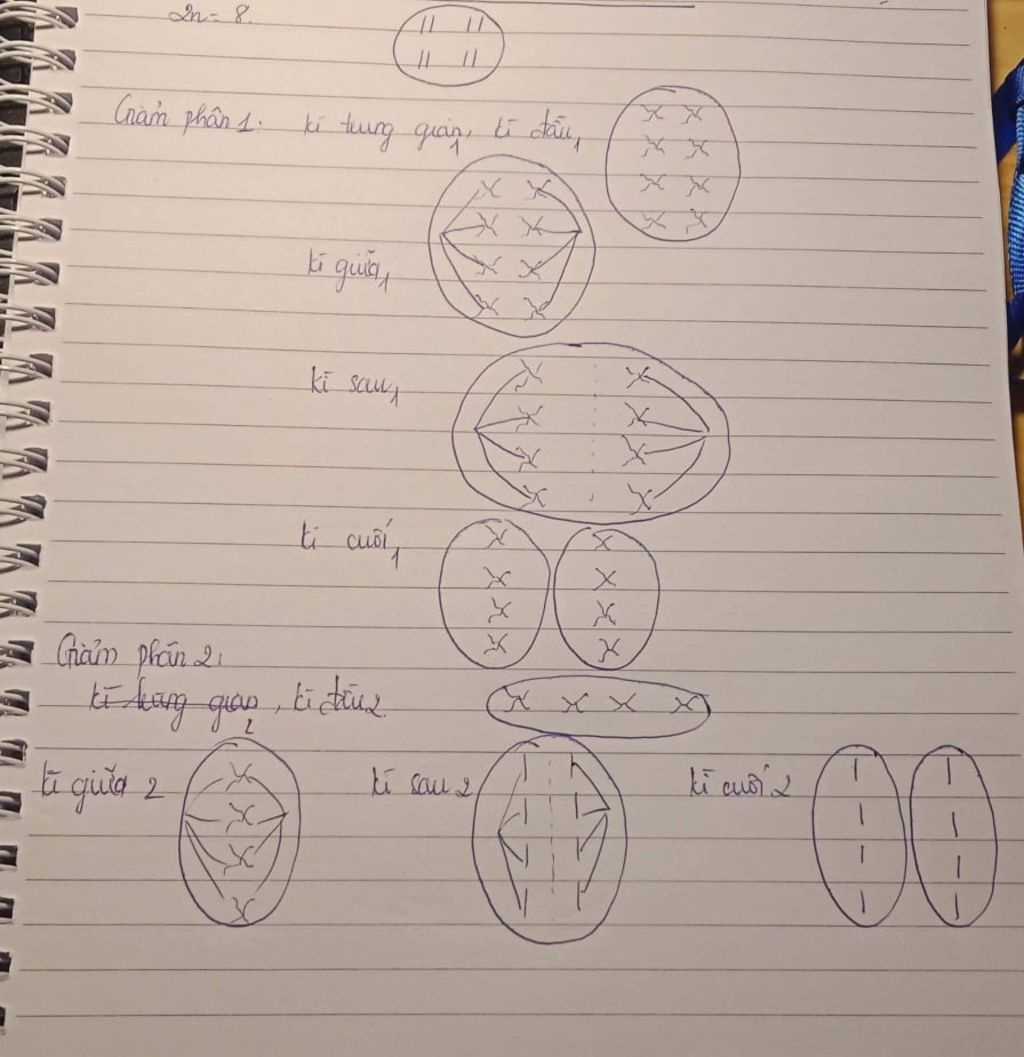 2n = 8.
Giảm phân 1. kì trung gian1, kì đầu1
kì giữa1
kì sau1
kì cuối1
Giảm phân 2.
kì trung gian2, kì đầu2
kì giữa 2 kì sau 2 kì cuối 2